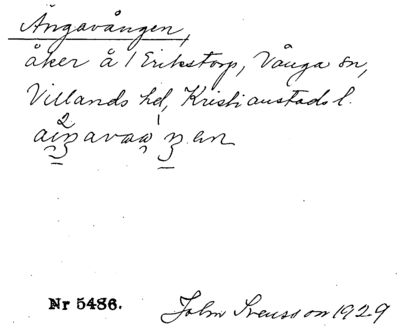 Ängavången,
åker å 1 Erikstorp, Vånga sn,
Villands hd, Kristianstads l.
Nr 5486.
John Svensson 1929